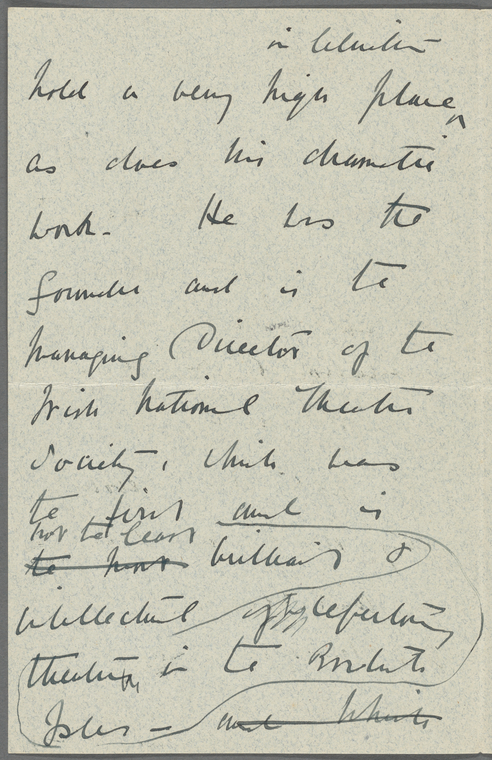 in literature
hold a very high place
as does his dramatic
work. He was the
founder and is the
managing Director of the
Irish National Theatre
Society, which was
the first and is
not the least
the most brilliant &
intellectual of the repertory
theatres in the British
Isles — and which